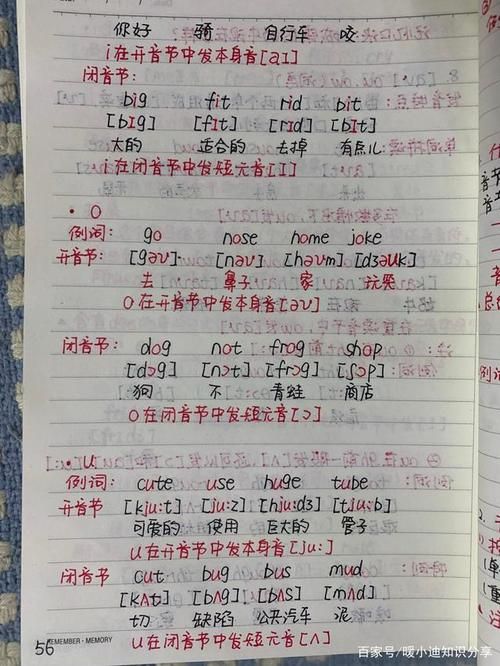 你好 骑 自行车 咬
i在开音节中发本身音[aI]
闭音节:
big fit rid bit
[bIg] [fIt] [rId] [bIt]
大的 适合的 去掉 有点儿
i在闭音节中发短元音[I]
· O
例词: go nose home joke
开音节: [gəʊ] [nəʊ] [həʊm] [dʒəʊk]
去 鼻子 家 玩笑
O在开音节中发本身音[əʊ]
闭音节: dog not frog shop
[dɔg] [nɔt] [frɔg] [ʃɔp]
狗 不 青蛙 商店
O在闭音节中发短元音[ɔ]
· U
例词: cute use huge tube
开音节 [kju:t] [ju:z] [hju:dʒ] [tju:b]
可爱的 使用 巨大的 管子
U在开音节中发本身音[ju:]
闭音节 cut bug bus mud
[kʌt] [bʌg] [bʌs] [mʌd]
切 缺陷 公共汽车 泥
U在闭音节中发短元音[ʌ]
56
REMEMBER·MEMORY
百家号/暖小迪知识分享